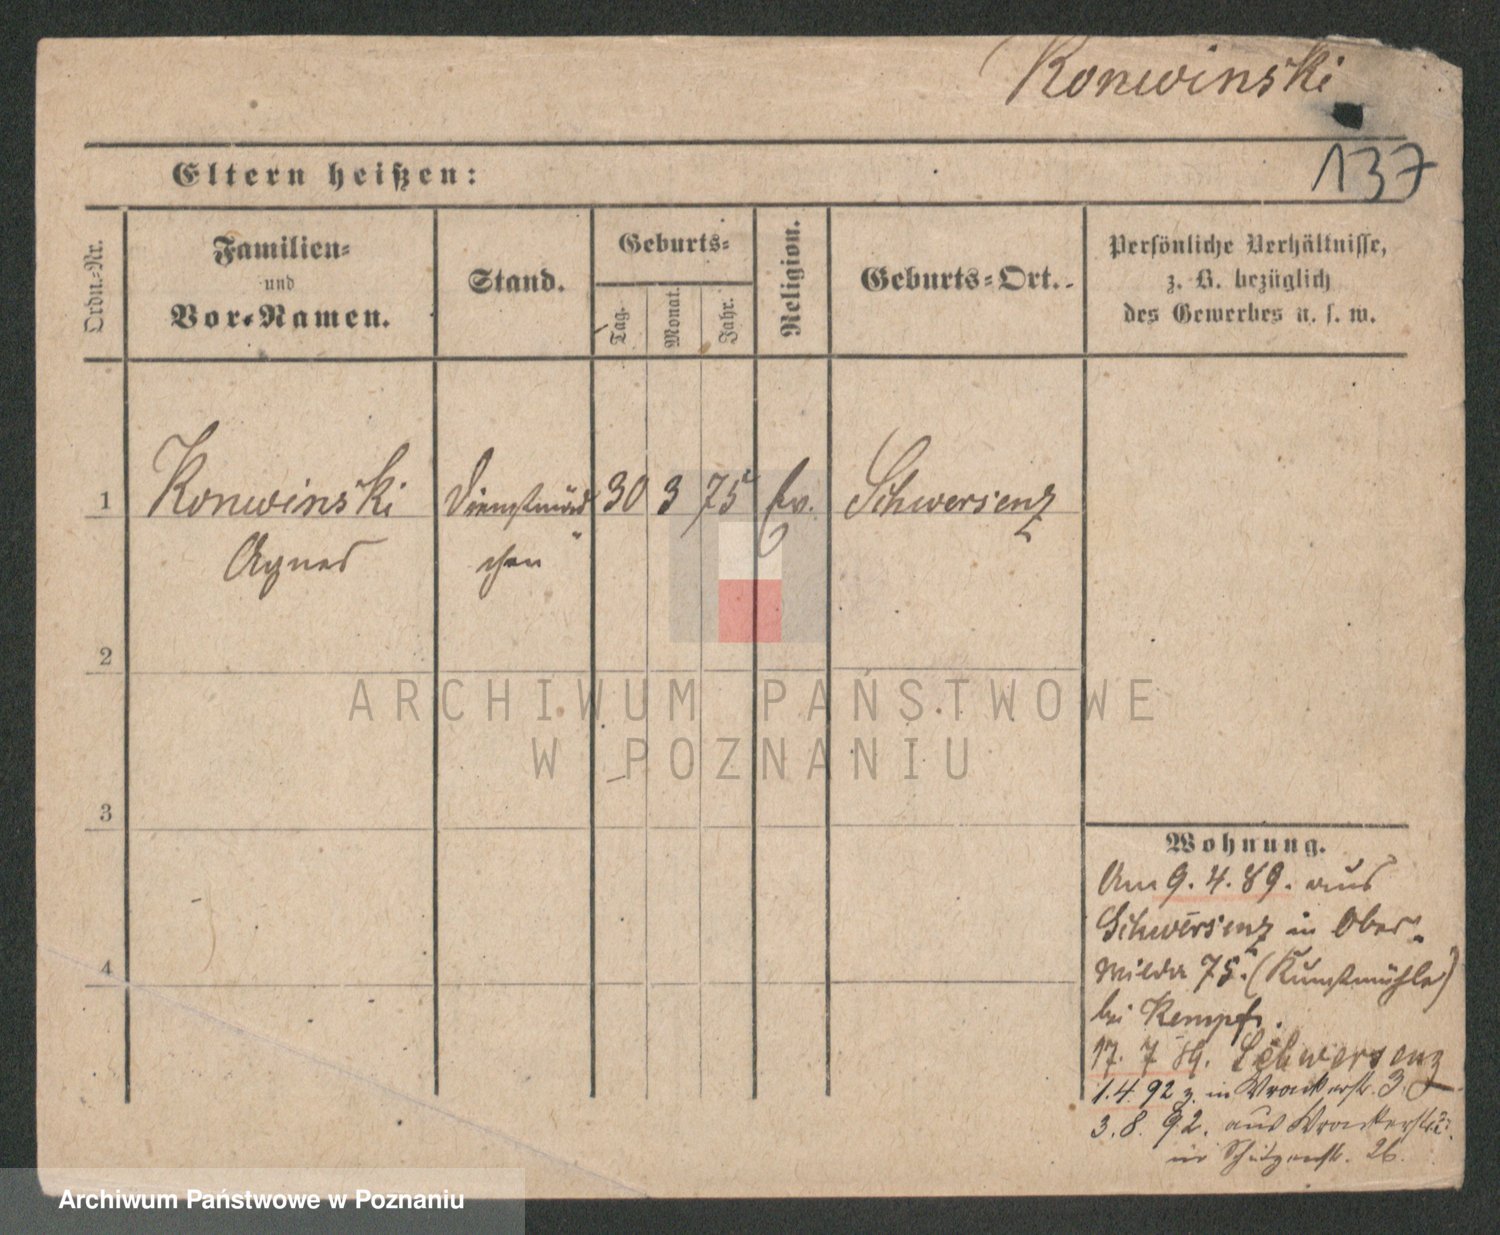 Konwinski
137
Eltern heißen:
Ordn.-Nr.
Familien-
und
Vor-Namen.
Stand.
Geburts-
Tag.
Monat.
Jahr.
Religion.
Geburts-Ort.
Persönliche Verhältnisse,
z. B. bezüglich
des Gewerbes u. s. w.
1 Konwinski Dienstmäd 30 3 75 Ev. Schwersenz
Agnes chen
2
3
4
Wohnung.
Am 9. 4. 89. aus
Schwersenz in Ober
Wilda 75. (Kunstmühle)
bei Kempf.
17. 7 89. Schwersenz
1. 4. 92 z. in Wronkerstr. 3.
3. 8. 92. aus Wronkerstr.
in Schützenstr. 26.
ARCHIWUM PAŃSTWOWE
W POZNANIU
Archiwum Państwowe w Poznaniu